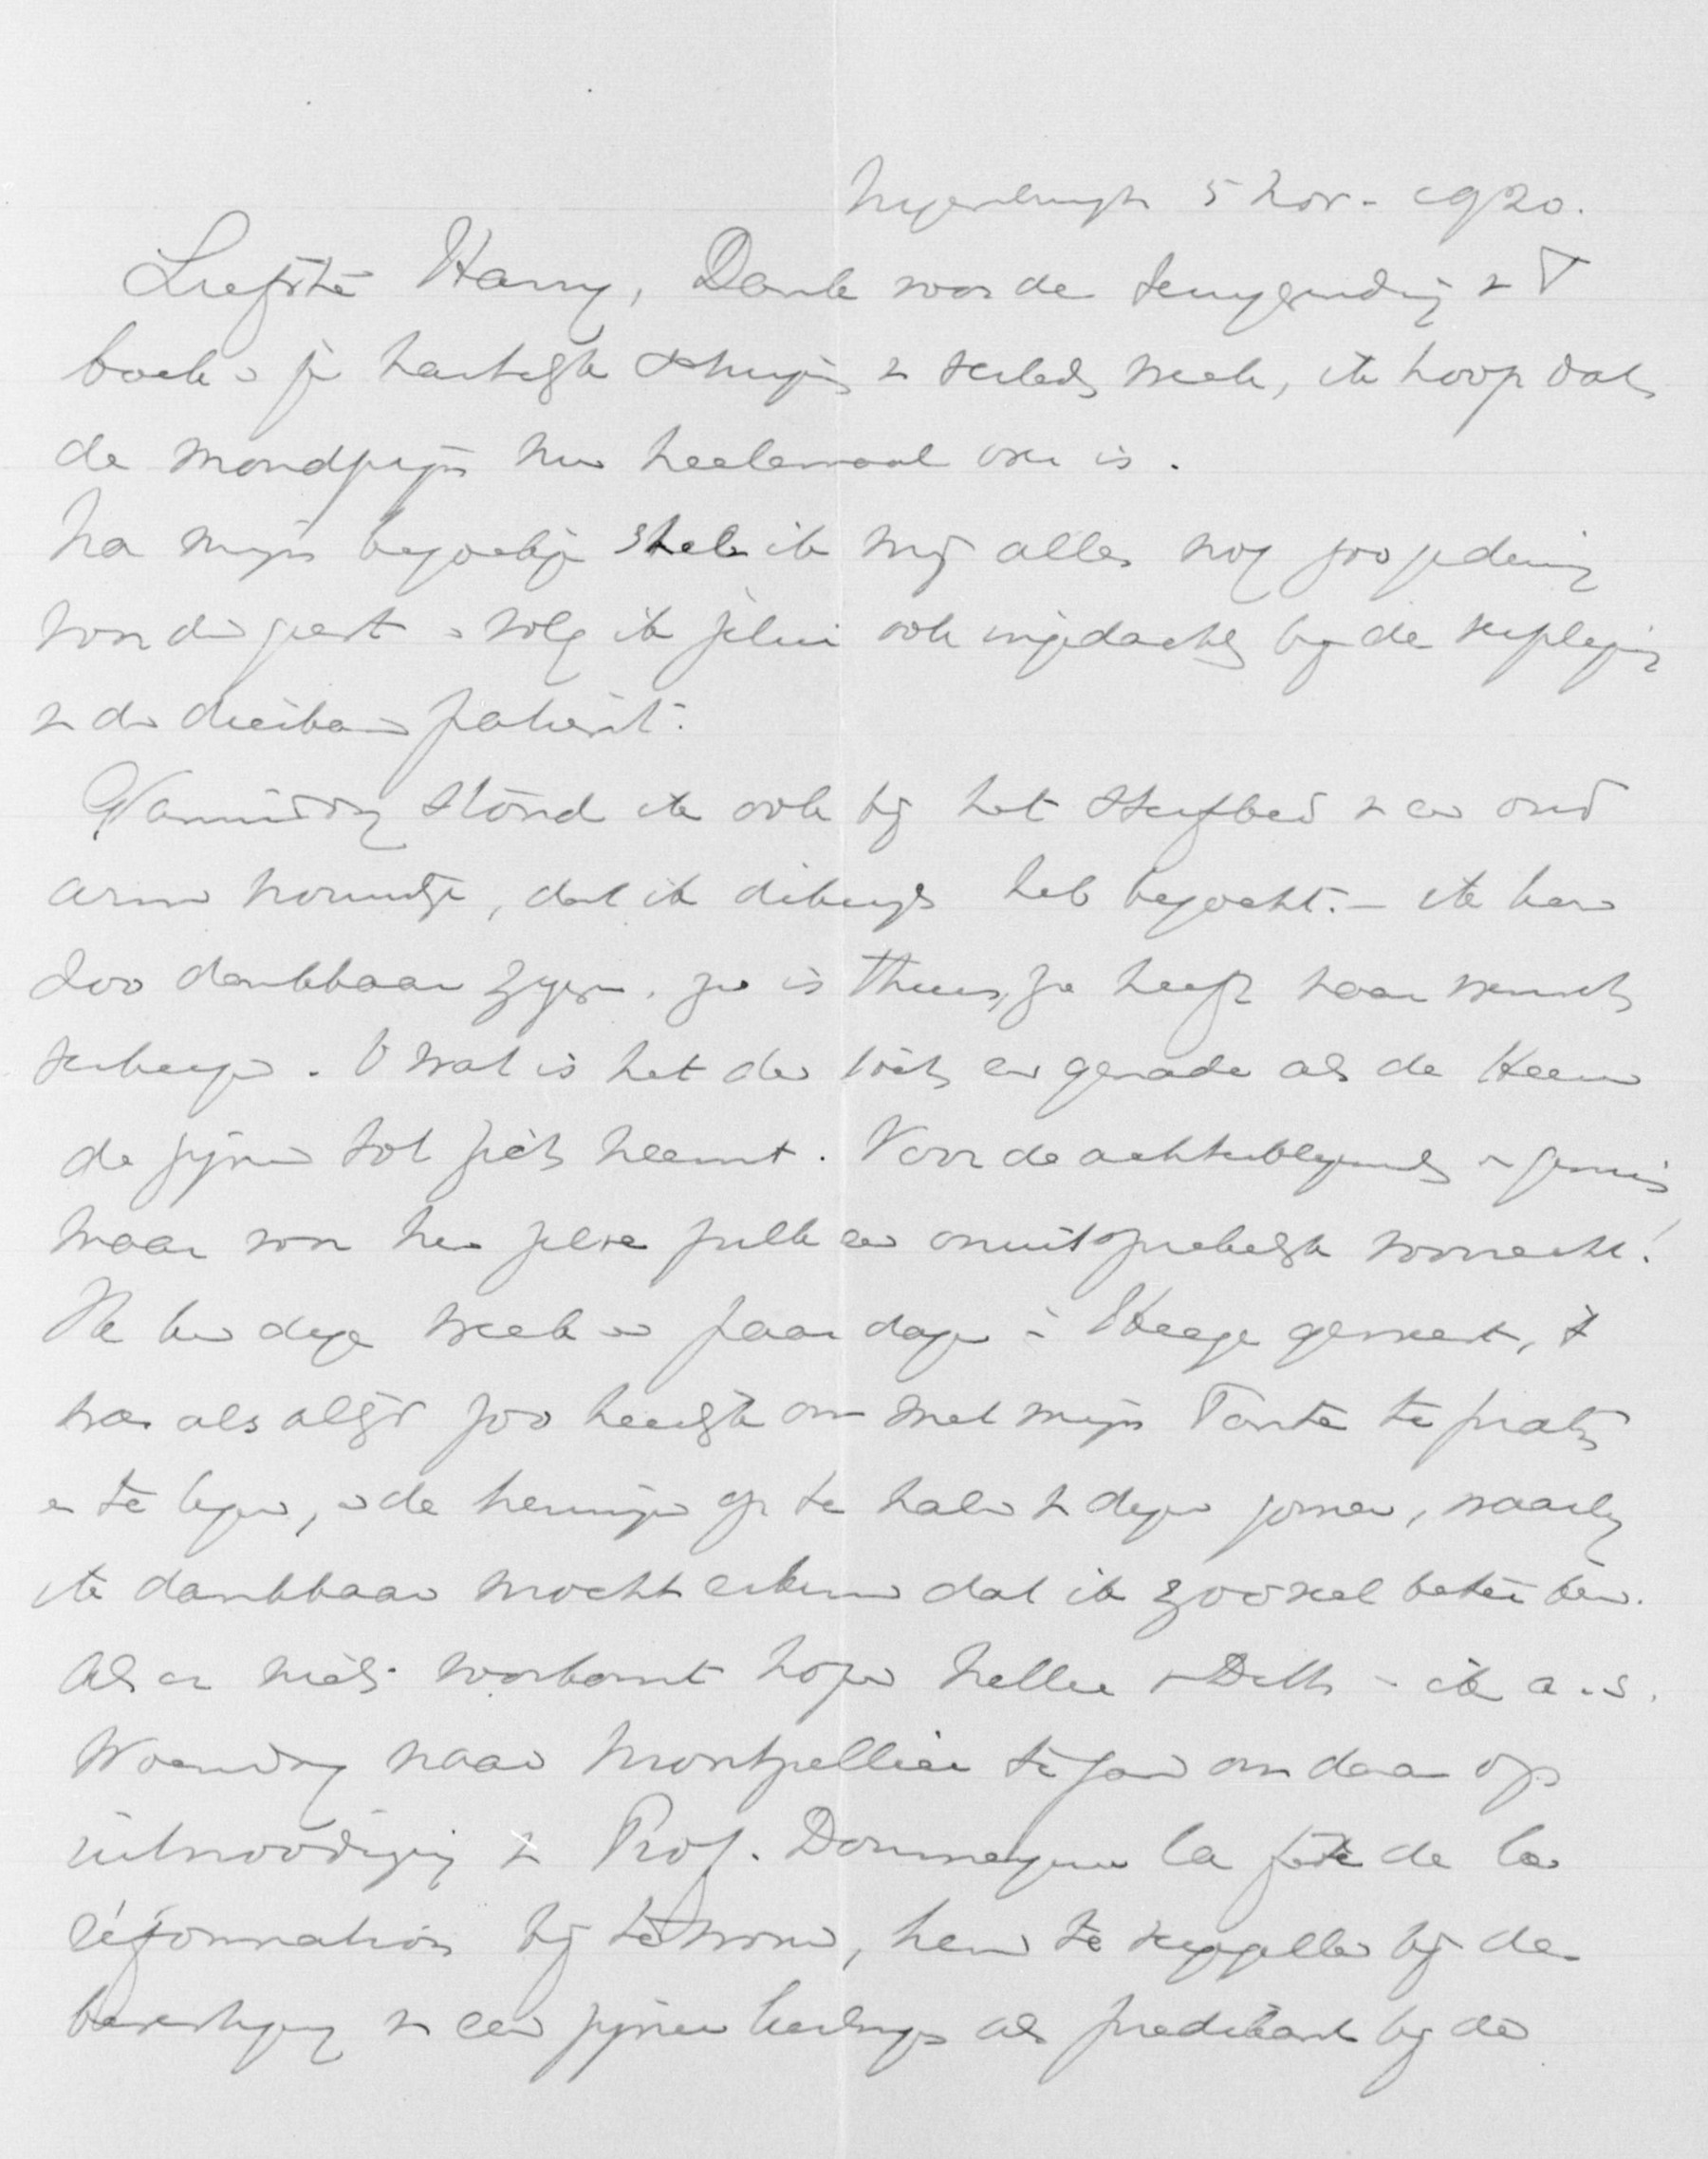 Nijenburgh 5 Nov. 1920.
Liefste Harry, Dank voor de terugzending v 't
boek en je hartelijk schrijven v verleden week, ik hoop dat
de mondpijn nu heelemaal over is.
Na mijn bezoekje stel ik mij alles nog zoo
voor den geest en volg ik jelui ook in gedachten bij de verpleging
v de dierbare patient.
Vanmiddag stond ik ook bij het sterfbed v een oud
arm vrouwtje, dat ik dikwijls heb bezocht. – Ik kan
zoo dankbaar zijn. ze is thuis, ze heeft haar wensch
verkregen. O wat is het dan toch een genade als de Heer
de zijnen tot zich neemt. Voor de achterblijvenden 'n gemis
maar voor hen zelve zulk een onuitsprekelijk voorrecht!
Ik ben deze week een paar dagen in Heeze geweest, 't
was als altijd zoo heerlijk om met mijn Tante te praten
en te lezen, en de herinnering op te halen v dezen zomer, waarbij
ik dankbaar mocht erkennen dat ik zooveel beter ben.
Als er niets voorkomt hopen Nellie v Delft en ik a.s.
Woensdag naar Montpellier te gaan om daar op
uitnoodiging v Prof. Doumergue la fête de la
réformation bij te wonen, hem te vergezellen bij de
bevestiging v een zijner leerlingen als predikant bij de